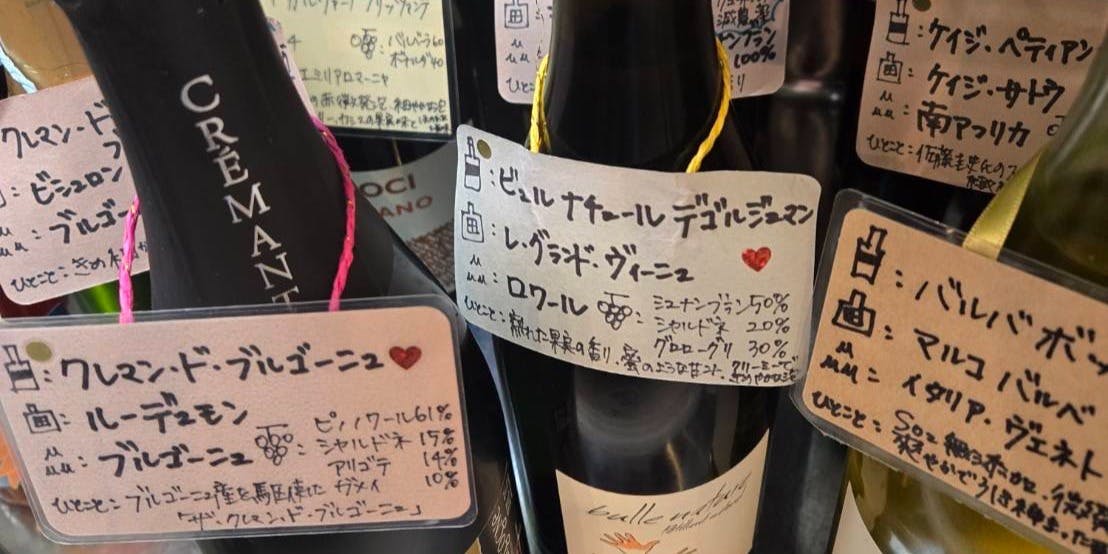 バルベラ60
エミリアロマーニャ
減農薬
100%
ケイジ・ペティアン
ケイジ・サトウ
南アフリカ
ひとこと:佐藤圭史氏の
クレマン・ド・
ビシュロン
ブルゴ
ひとこと:きめ
CREMANT
OCI
ANO
ビュル ナチュール デゴルジュマン
レ・グランド・ヴィーニュ
ロワール
シュナンブラン50%
シャルドネ 20%
グロローグリ 30%
ひとこと:熟れた果実の香り、蜜のような甘み、クリーミーで
クレマン・ド・ブルゴーニュ
ルーデュモン
ブルゴーニュ
ピノノワール61%
シャルドネ 15%
アリゴテ 14%
ガメイ 10%
ひとこと:ブルゴーニュ産を馬区使した
「ザ・クレマン・ド・ブルゴーニュ」
バルバ ボッ
マルコ バルベ
イタリア・ヴェネト
ひとこと:So2無添加、微発
爽やかでうま味
bulle nature